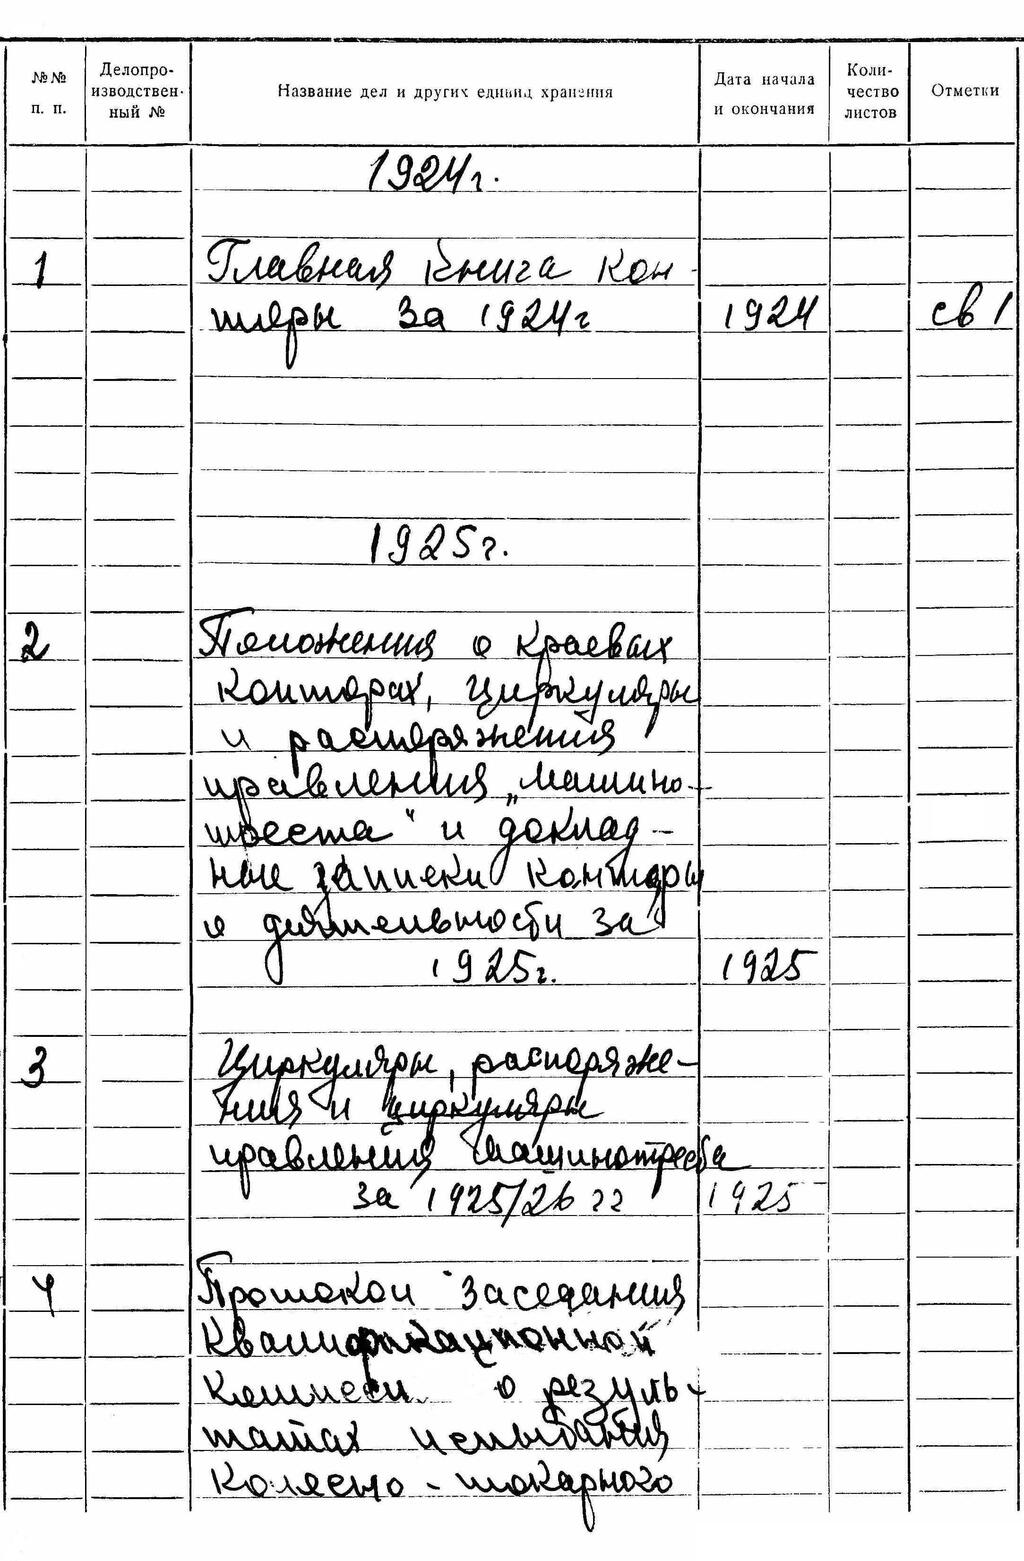 №№ п. п.
Делопро-
изводствен-
ный №
Название дел и других единиц хранения
Дата начала
и окончания
Коли-
чество
листов
Отметки
1924г.
1
Главная книга кон-
торы за 1924г
1924
св 1
1925г.
2
Положения о краевых
конторах, циркуляры
и распоряжения
правления „Машино-
треста" и доклад-
ные записки конторы
о деятельности за
1925г.
1925
3
Циркуляры, распоряже-
ния и циркуляры
правления Машинотреста
за 1925/26 гг
1925
4
Протокол заседания
Квалификационной
Комиссии о резуль-
татах испытания
колесно-токарного